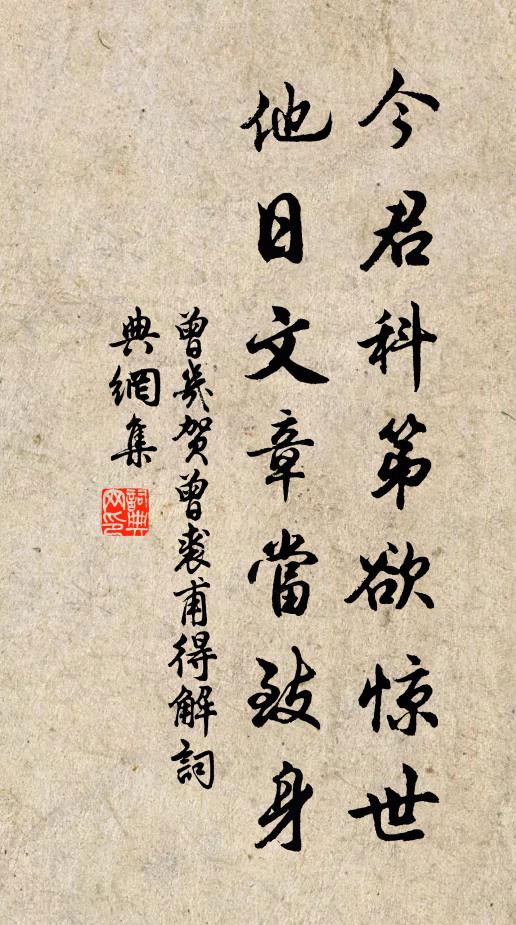 今君科第欲惊世
他日文章當致身
曾幾贺曾裘甫得解詞
典網集
詞典
网印